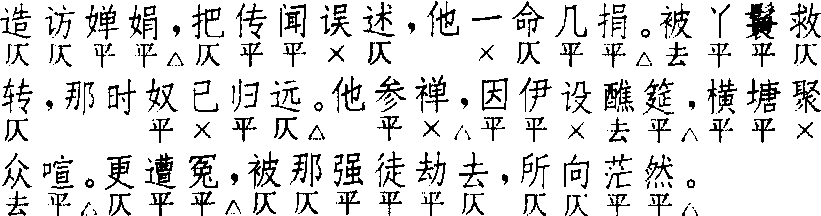 造访婵娟，把传闻误述，他一命几捐。被丫鬟救
仄仄平平△仄平平×仄　×仄平平△去平平仄
转，那时奴已归远。他参禅，因伊设醮筵，横塘聚
仄　平×平仄△　平×△平平×去平△平平×
众喧。更遭冤，被那强徒劫去，所向茫然。
去平△仄平平△仄仄平平平仄　仄仄平平△